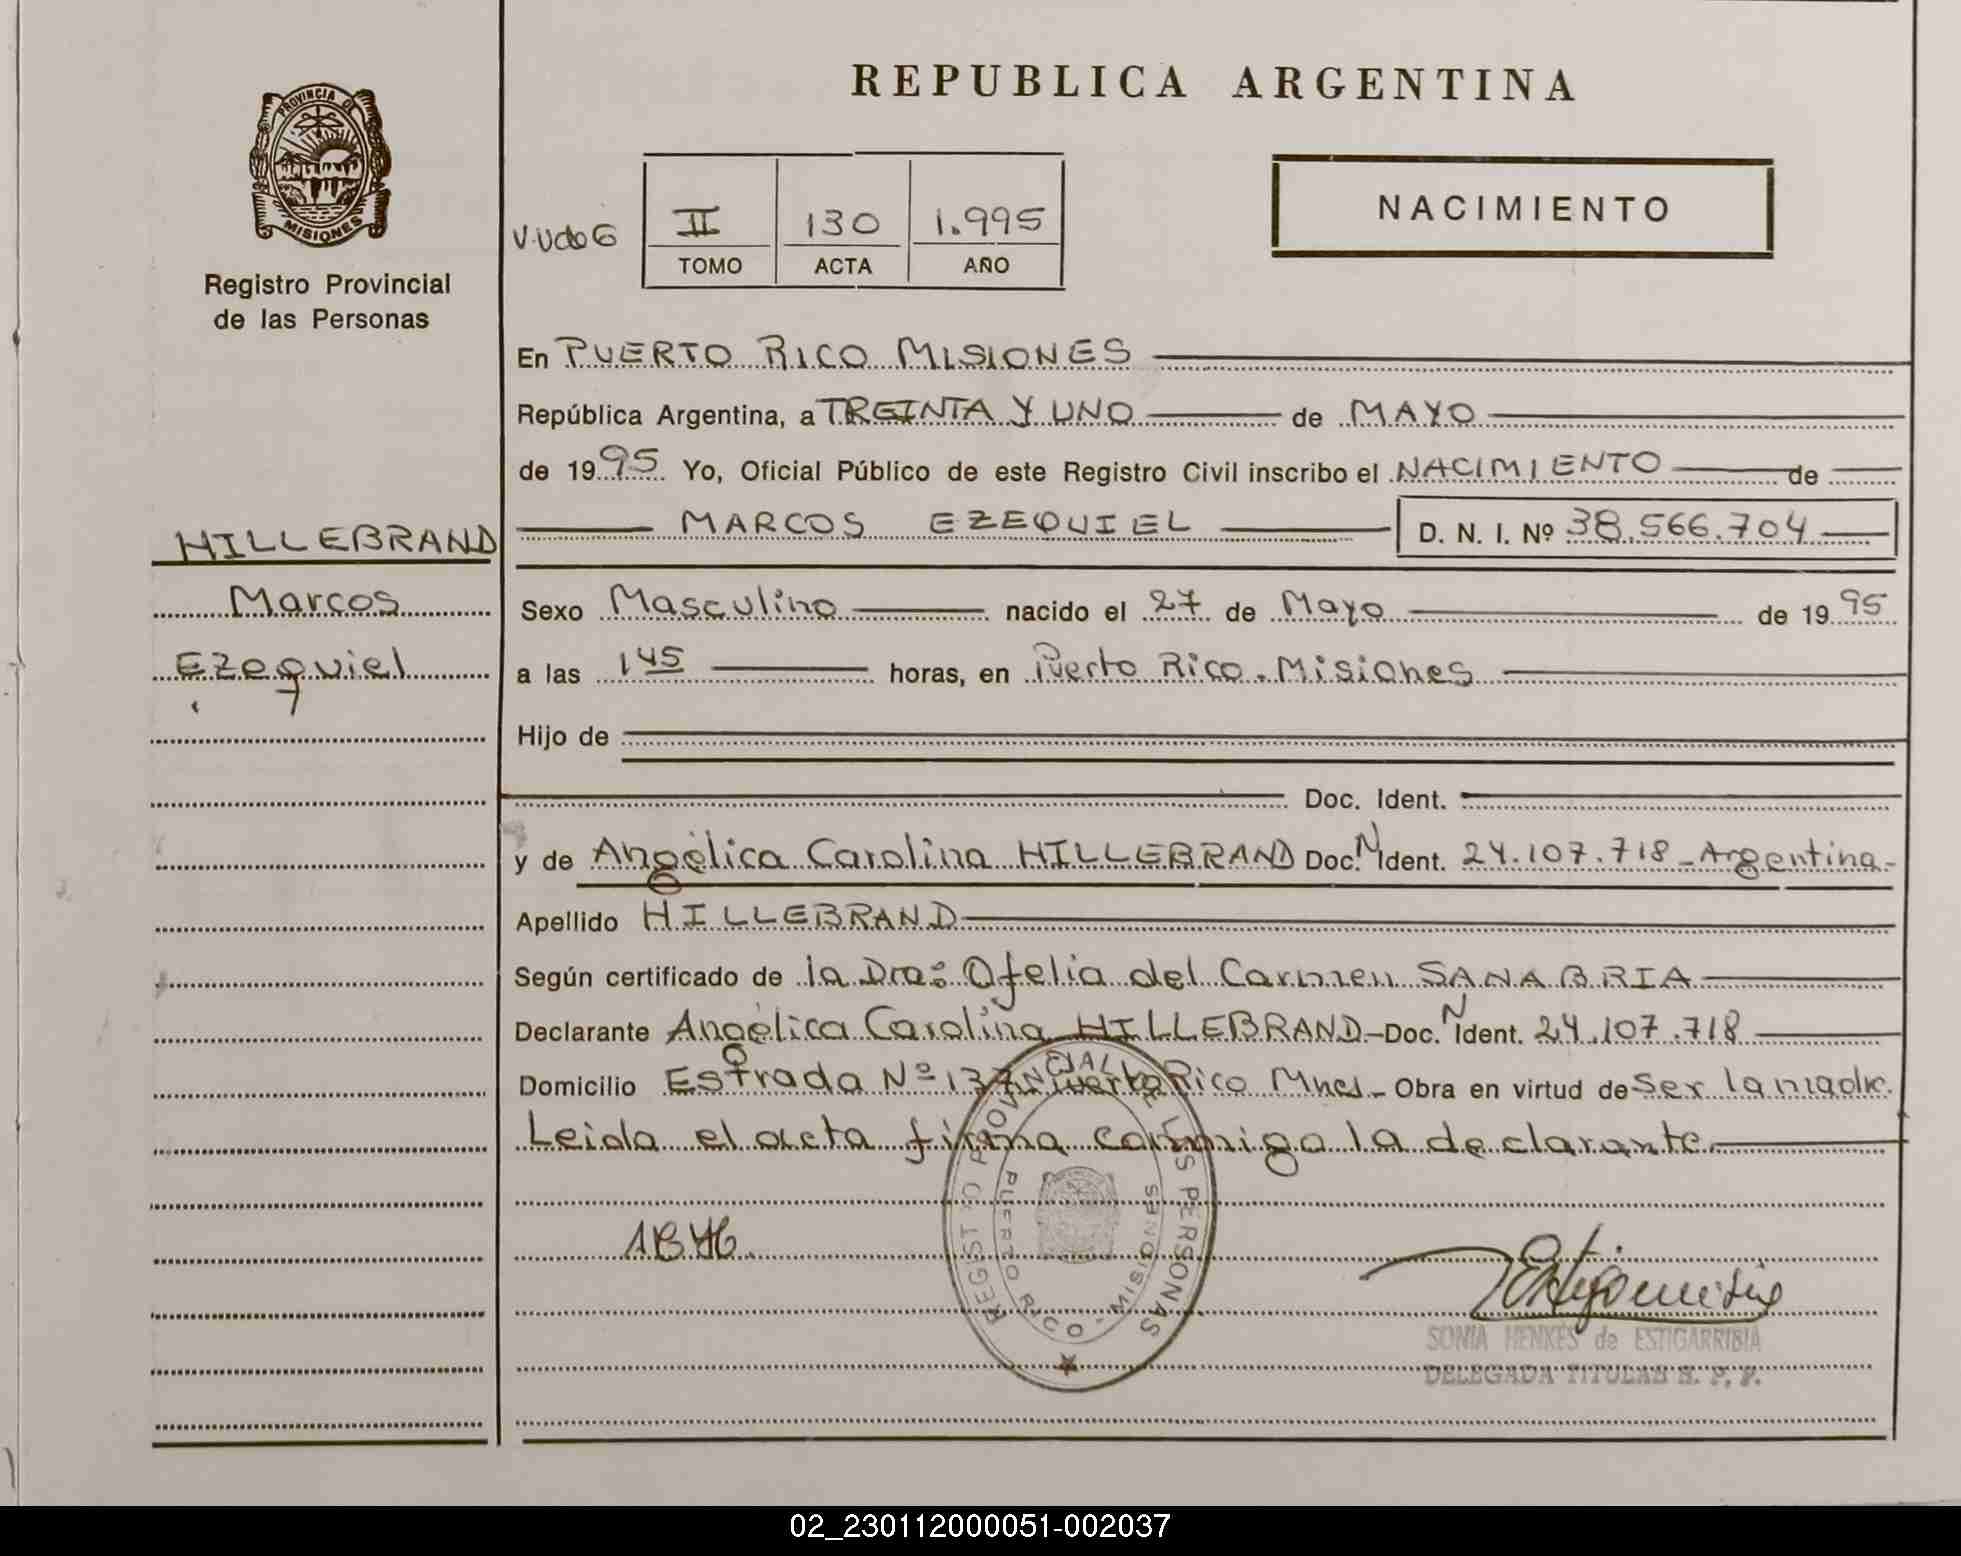 REPUBLICA ARGENTINA
PROVINCIA DE
MISIONES
Registro Provincial
de las Personas
NACIMIENTO
II 130 1.995
TOMO ACTA AÑO
En PUERTO RICO MISIONES
República Argentina, a TREINTA Y UNO de MAYO
de 1995 Yo, Oficial Público de este Registro Civil inscribo el NACIMIENTO de
MARCOS EZEQUIEL D. N. I. Nº 38.566.704
HILLEBRAND
Marcos
Ezequiel
Sexo Masculino nacido el 27 de Mayo de 1995
a las 1 45 horas, en Puerto Rico. Misiones
Hijo de
Doc. Ident.
y de Angélica Carolina HILLEBRAND Doc. N Ident. 24.107.718 - Argentina -
Apellido HILLEBRAND
Según certificado de la Dra: Ofelia del Carmen SANABRIA
Declarante Angélica Carolina HILLEBRAND - Doc. N Ident. 24.107.718
Domicilio Estrada Nº 137 Puerto Rico Mnes - Obra en virtud de ser la madre.
Leida el acta firma conmigo la declarante.
REGISTRO PROVINCIAL DE LAS PERSONAS
PUERTO RICO - MISIONES
SONIA HENKES de ESTIGARRIBIA
DELEGADA TITULAR R. P. P.
02_230112000051-002037